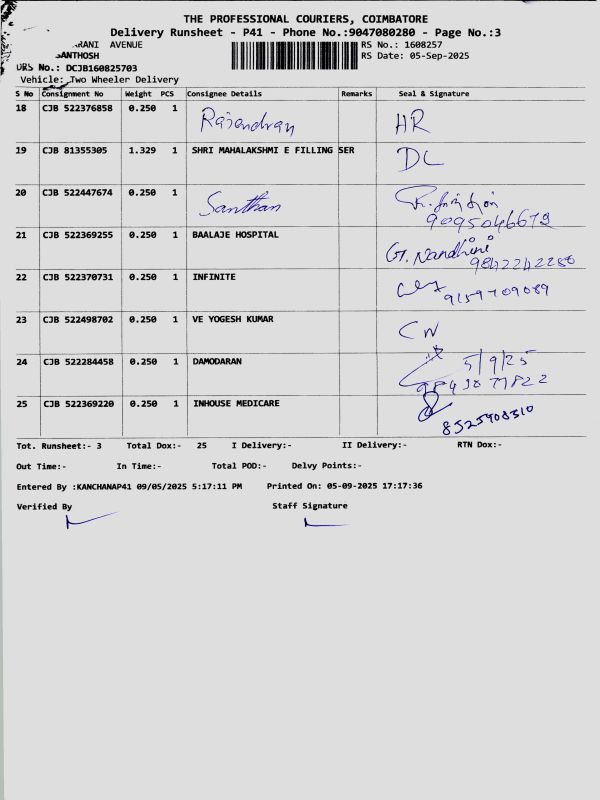 THE PROFESSIONAL COURIERS, COIMBATORE
Delivery Runsheet - P41 - Phone No.:9047080280 - Page No.:3
RANI AVENUE RS No.: 1608257
SANTHOSH RS Date: 05-Sep-2025
DRS No.: DCJB160825703
Vehicle: Two Wheeler Delivery
S No Consignment No Weight PCS Consignee Details Remarks Seal & Signature
18 CJB 522376858 0.250 1 Rajendran HR
19 CJB 81355305 1.329 1 SHRI MAHALAKSHMI E FILLING SER DC
20 CJB 522447674 0.250 1 Santhan
9095046679
21 CJB 522369255 0.250 1 BAALAJE HOSPITAL G. Nandhini
9842242286
22 CJB 522370731 0.250 1 INFINITE 9159709089
23 CJB 522498702 0.250 1 VE YOGESH KUMAR CW
24 CJB 522284458 0.250 1 DAMODARAN 5/9/25
25 CJB 522369220 0.250 1 INHOUSE MEDICARE 8525908310
Tot. Runsheet:- 3 Total Dox:- 25 I Delivery:- II Delivery:- RTN Dox:-
Out Time:- In Time:- Total POD:- Delvy Points:-
Entered By :KANCHANAP41 09/05/2025 5:17:11 PM Printed On: 05-09-2025 17:17:36
Verified By Staff Signature